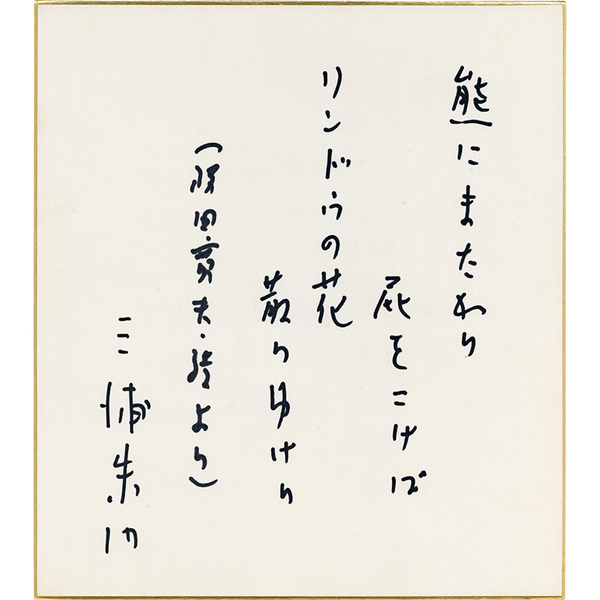 熊にまたがり
屁をこけば
リンドウの花
散りゆけり
(阪田寛夫・詩より)
三浦朱門